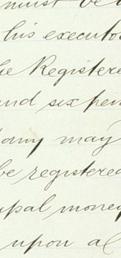 must be
his executo
he Registere
and six pen
pany may
be registered
ipal money
upon al